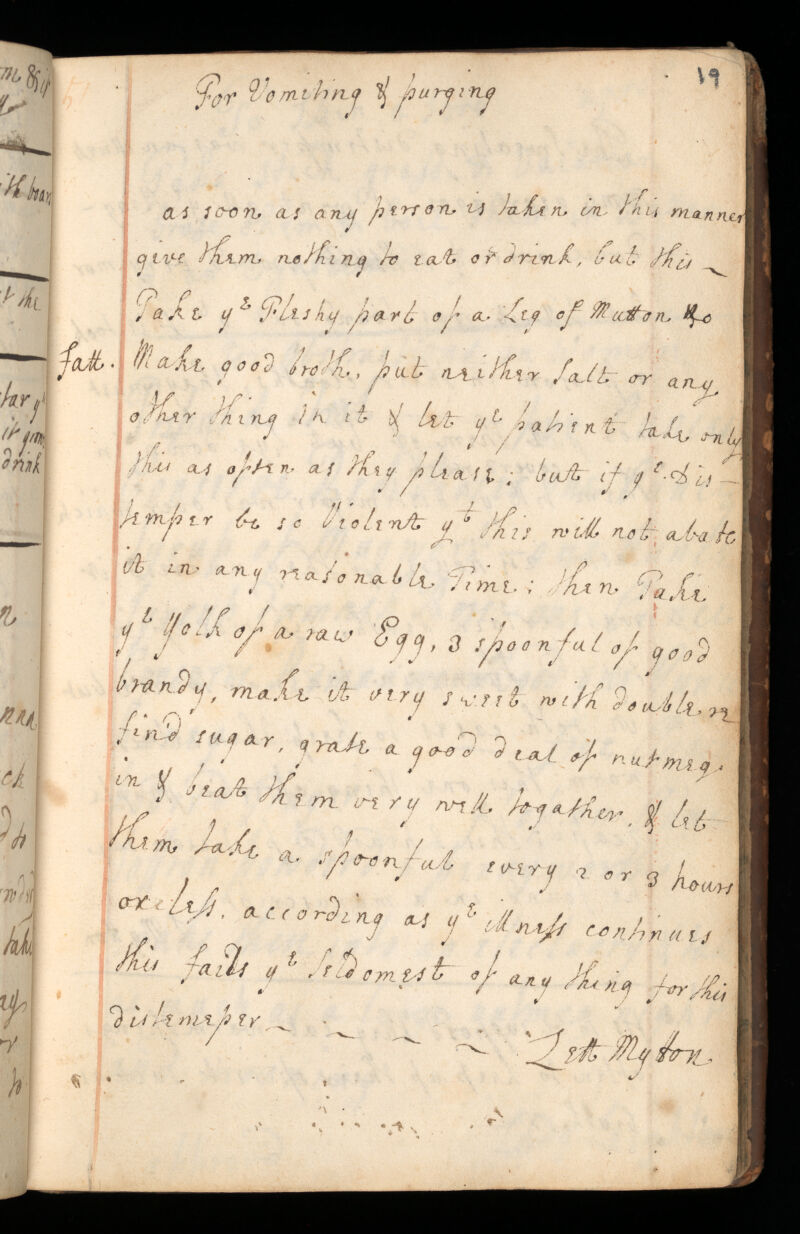 19
For Vomiting & purging
as soon as any person is taken in this manner
give them nothing to eat or drink, but this
Take yᵉ Fleshy part of a Leg of Mutton no
fatt. Make good broth, put neither Salt or any
other thing in it & let yᵉ patient take only
this as often as they please; but if yᵉ Dis-
temper be so Violent yᵗ this will not abate
it in any reasonable Time; then Take
yᵉ Yolk of a raw Egg, 3 spoonful of good
brandy, make it very sweet with double re
fin'd sugar, grate a good deal of nutmeg
in & beat them very well togather, & let
them take a spoonful every 2 or 3 hours
or less, according as yᵉ illness continues
this fails yᵉ Seldomest of any thing for this
distemeper
Lett Mytton